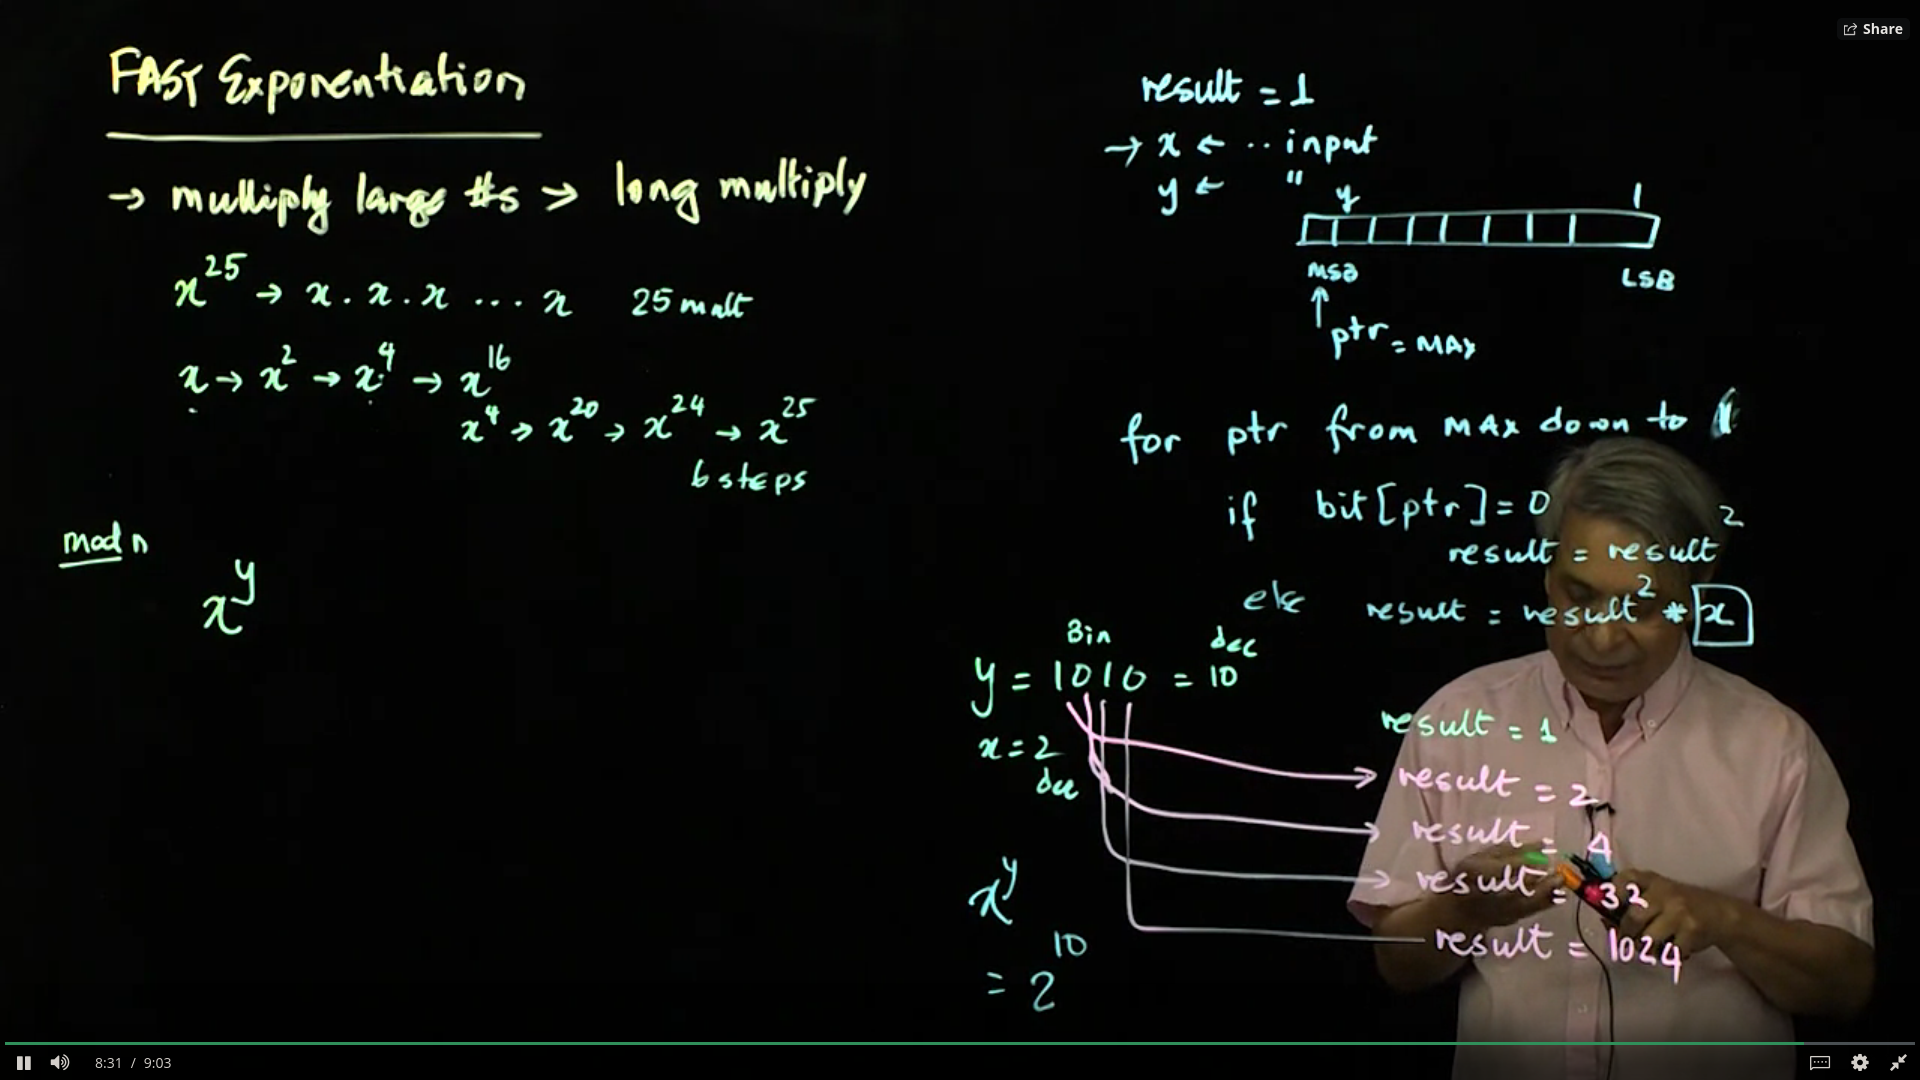 Share
FAST Exponentiation
→ multiply large #s > long multiply
x^25 → x . x . x ... x 25 mult
x → x^2 → x^4 → x^16
x^4 → x^20 → x^24 → x^25
6 steps
mod n
x^y
result = 1
→ x ← .. input
y ← "
y 1
MSB LSB
ptr = MAX
for ptr from MAX down to
if bit[ptr] = 0
result = result^2
else result = result^2 * x
Bin dec
y = 1010 = 10
x = 2
dec
result = 1
result = 2
result = 4
result = 32
result = 1024
x^y
= 2^10
8:31 / 9:03